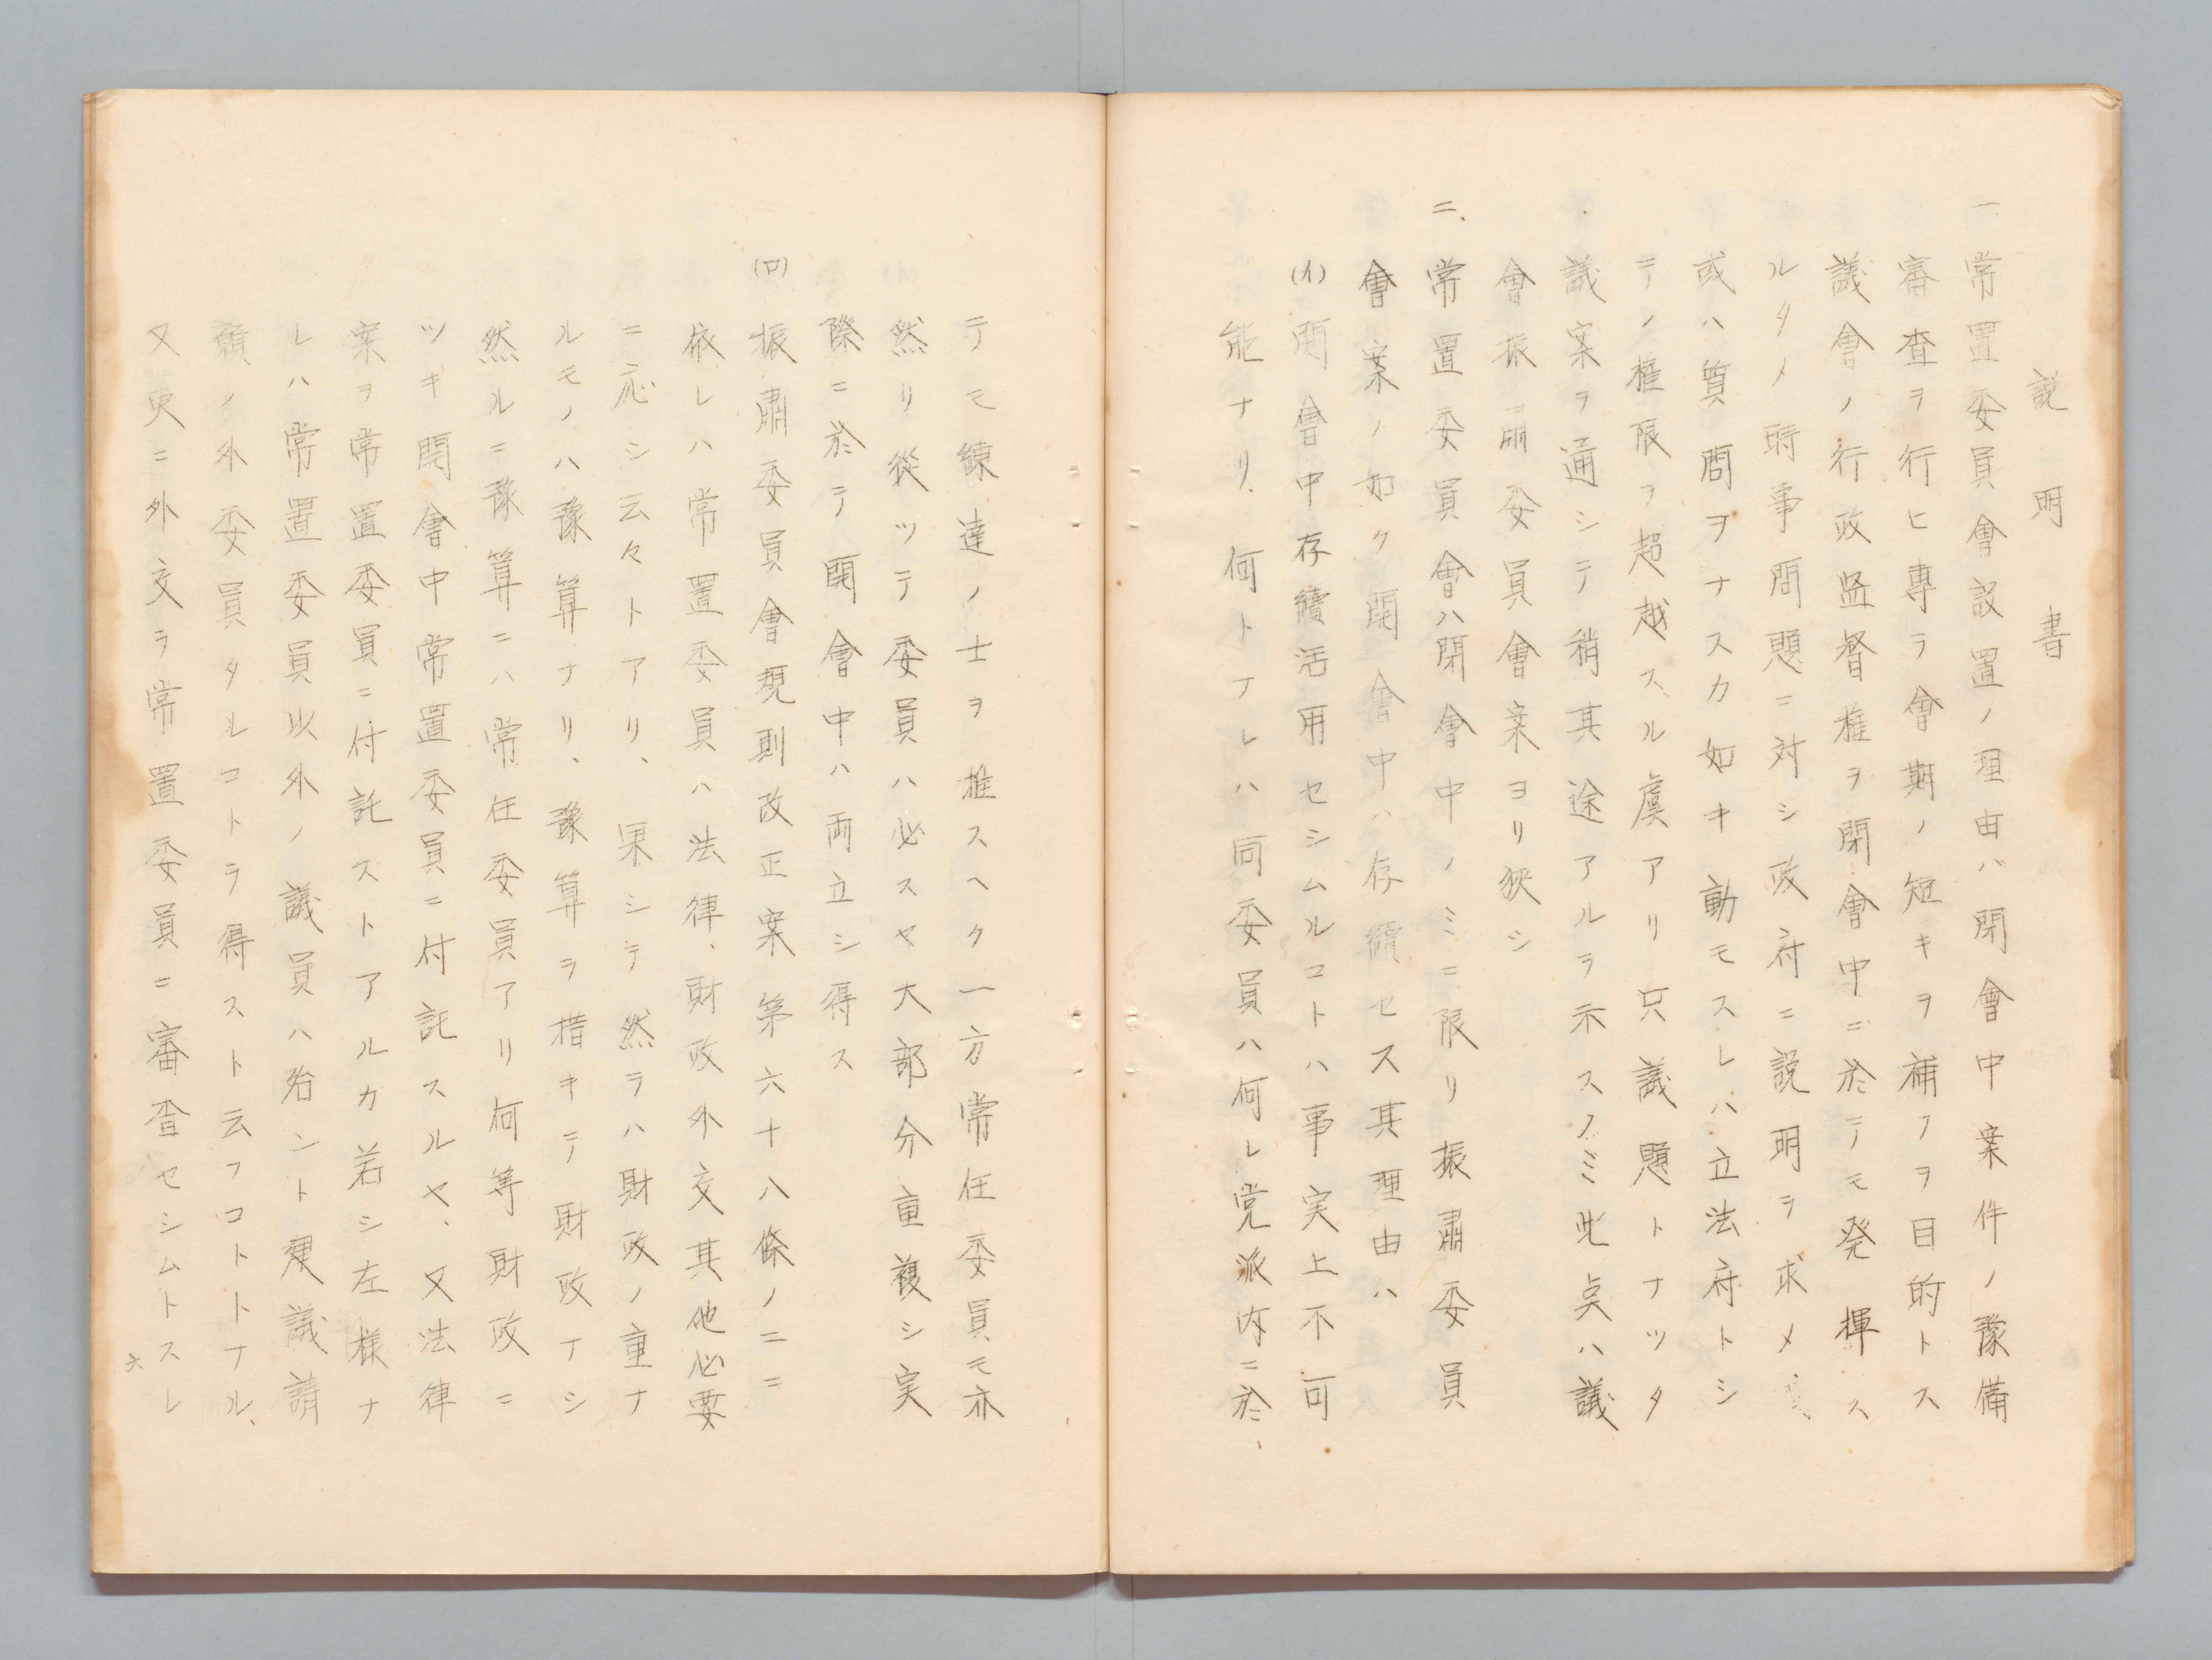 説明書
一 常置委員會設置ノ理由ハ閉會中案件ノ豫備
審査ヲ行ヒ專ラ會期ノ短キヲ補フヲ目的トス
議會ノ行政監督権ヲ閉會中ニ於テモ発揮ス
ルタメ時事問題ニ対シ政府ニ説明ヲ求メ
或ハ質問ヲナスカ如キ動モスレハ立法府トシ
テノ権限ヲ超越スル虞アリ只議題トナツタ
議案ヲ通シテ稍其途アルヲ示スノミ此点ハ議
會振肅委員會案ヨリ狹シ
二、常置委員會ハ閉會中ノミニ限リ振肅委員
會案ノ如ク開會中ハ存續セス其理由ハ
(イ)開會中存續活用セシムルコトハ事実上不可
能ナリ、何トナレハ同委員ハ何レ党派内ニ於
テモ練達ノ士ヲ推スヘク一方常任委員モ亦
然リ從ツテ委員ハ必スヤ大部分重複シ実
際ニ於テ開會中ハ両立シ得ス
(ロ)振肅委員會規則改正案第六十八條ノ二ニ
依レハ常置委員ハ法律、財政外交其他必要
ニ応シ云々トアリ、果シテ然ラハ財政ノ重ナ
ルモノハ豫算ナリ、豫算ヲ措キテ財政ナシ
然ルニ豫算ニハ常任委員アリ何等財政ニ
ツキ開會中常置委員ニ付託スルヤ、又法律
案ヲ常置委員ニ付託ストアルカ若シ左様ナ
レハ常置委員以外ノ議員ハ殆ント建議請
願ノ外委員タルコトヲ得スト云フコトトナル、
又更ニ外交ヲ常置委員ニ審査セシムトスレ
六